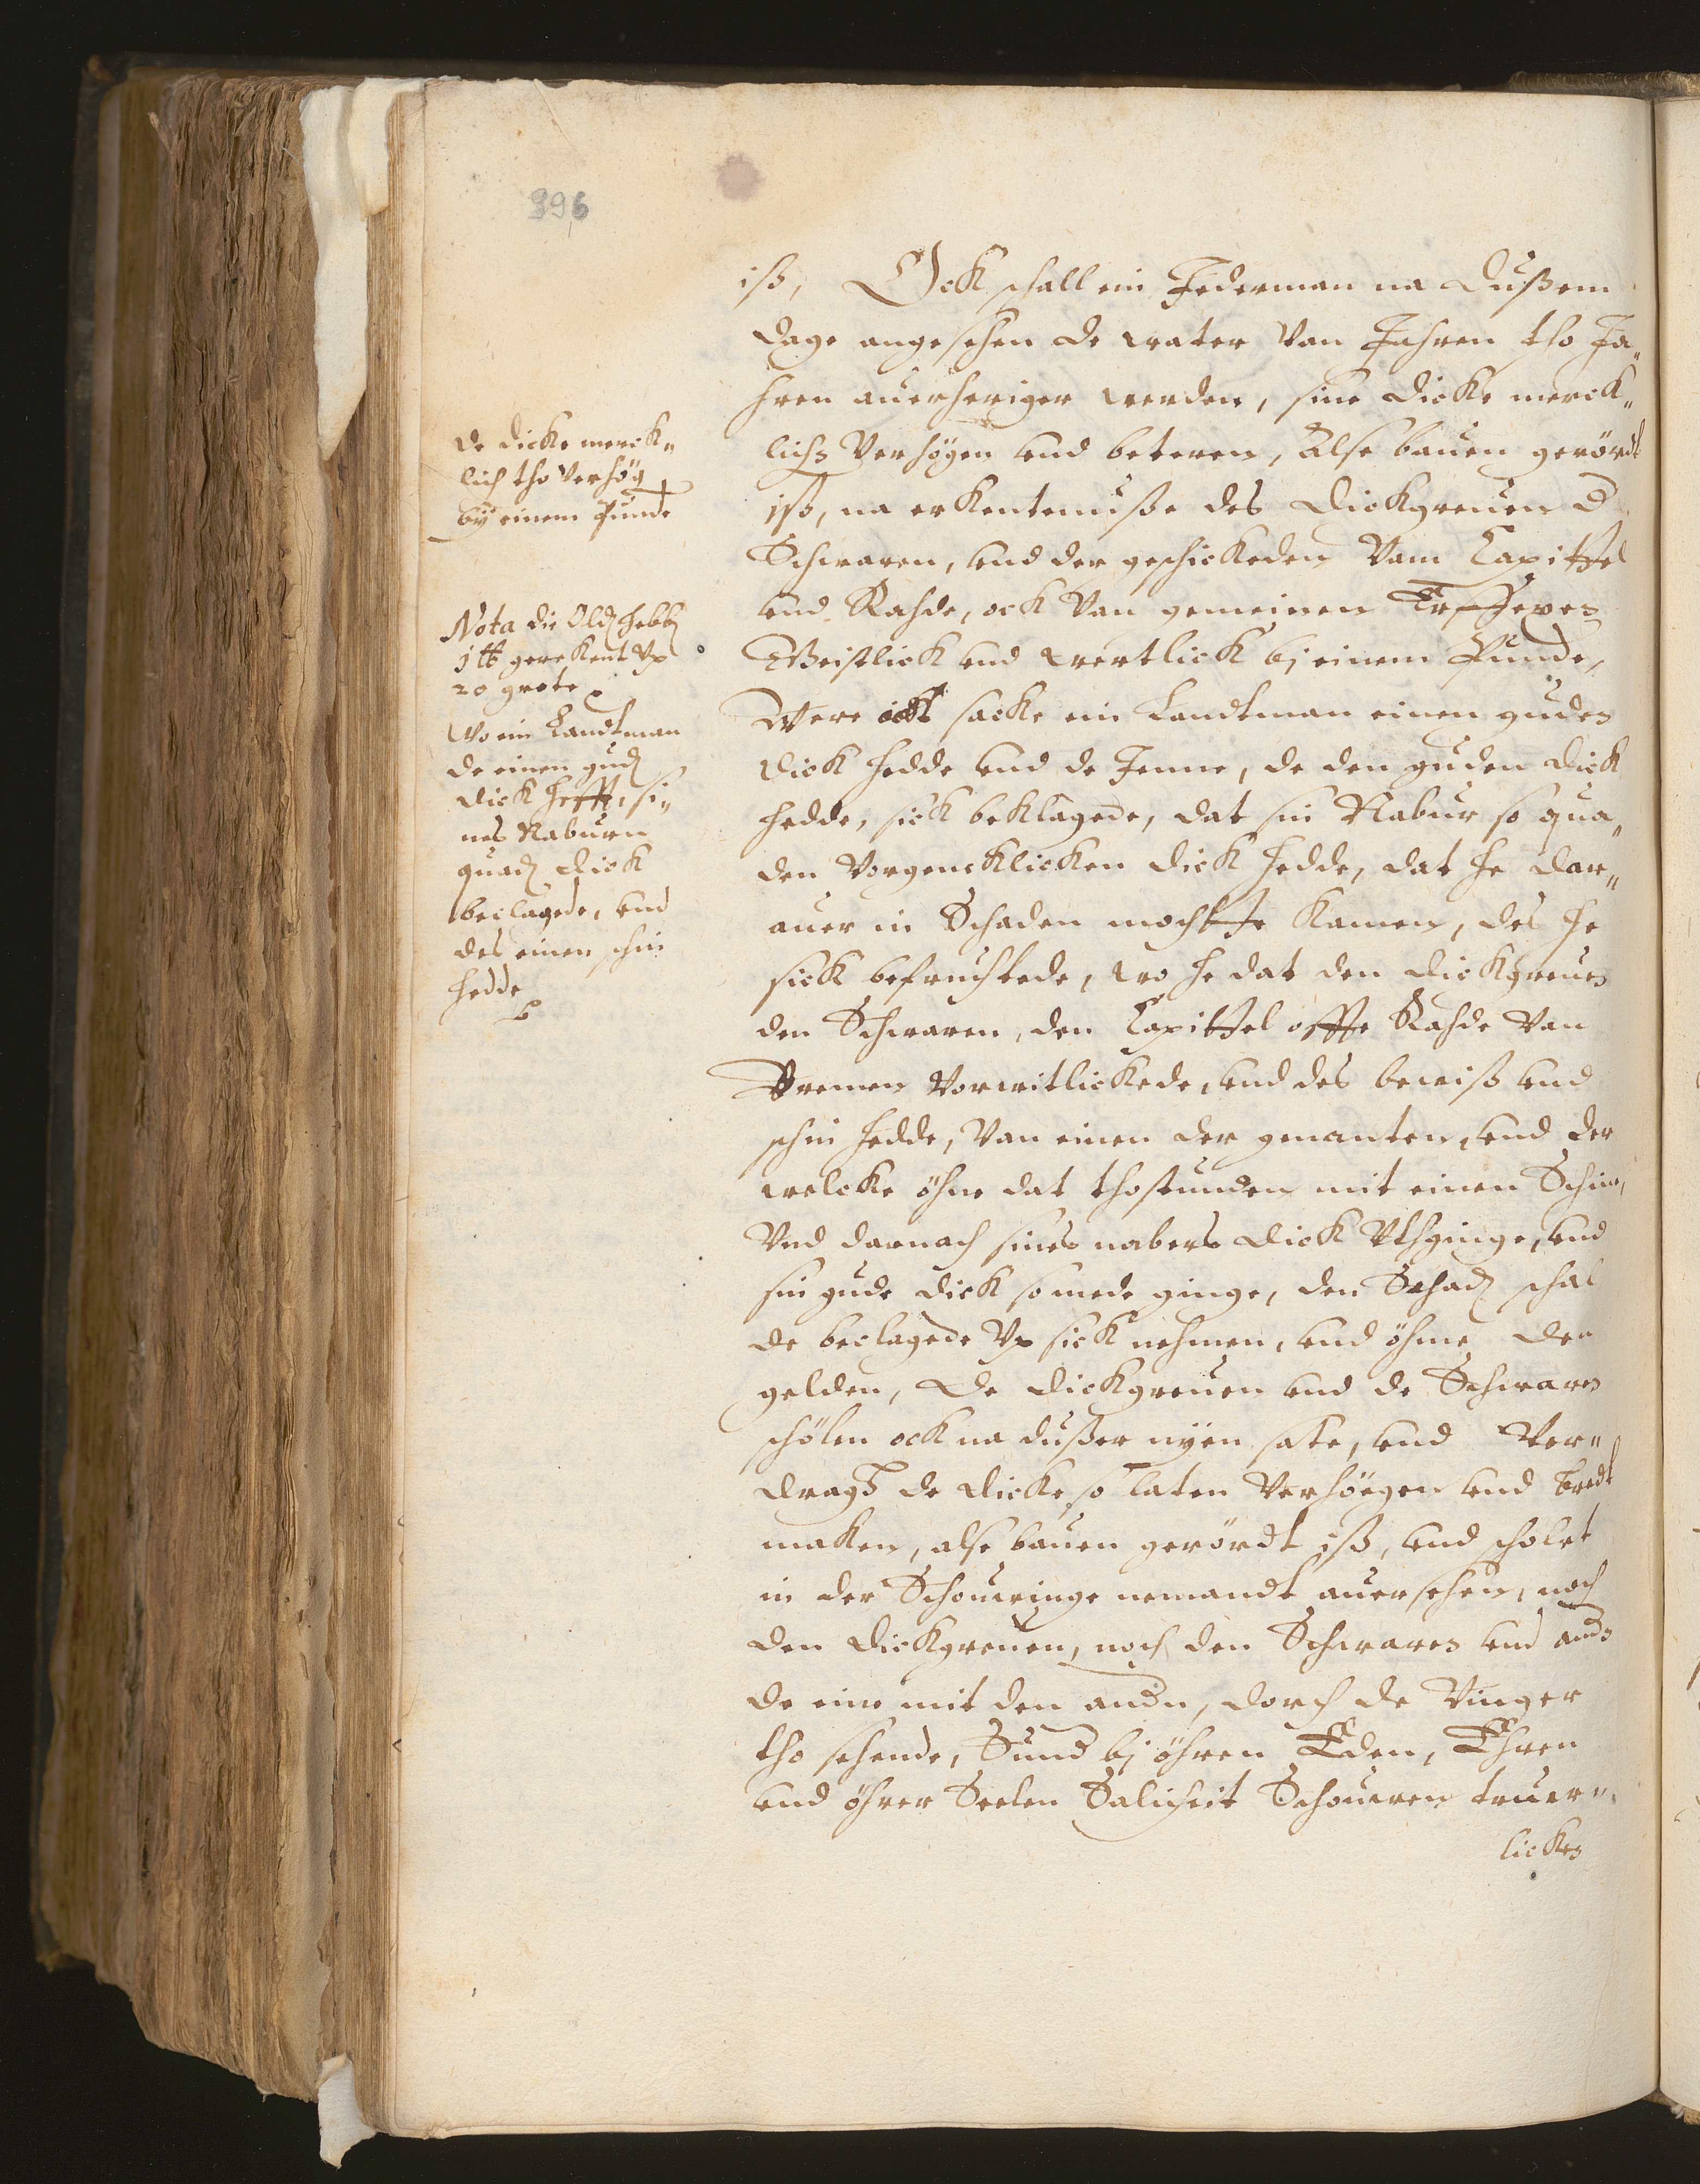 396
iß, Ock schall ein Jederman na dußem
dage angesehen de water van Jahren tho Ja„
hren auerheriger werden, sine dicke merck„
lichs verhögen und beteren, Alse bauen gerördt
iß, na erkentenuße des dickgreuen
Schwaren, und der geschickeden vam Capittel
und Rahde, ock van gemeinen Erffexen
Geistlick und wertlick bj einem Punde,
Were ickt sacke ein Landtman einen guden
dick hedde und de Jenne, de den guden dick
hedde, sick beklagede, dat sin Nabur so qua„
den vorgencklicken dick hedde, dat he dar„
auer in Schaden mochtte kamen, des he
sick befruchtede, wo he dat den dickgreuen
den Schwaren, den Capittel offte Rahde van
Bremen vorwitlickede, und des bewiß und
schin hedde, van einen der genanten, und der
welcke öhne dat thostunden mit einen Schine,
Und darnach sines nabers dick uthginge, und
sin gude dick so mede ginge, den Schaden schal
de beclagede up sick nehmen, und öhme den
gelden, de dickgreuen und de Schwaren
schölen ock na dußer nyen sate, und ver„
dragh de dicke so laten verhöegen und bredt
maken, alse bauen gerördt iß, und scholet
in der Schouwinge nemandt auersehen, noch
den dickgreuen, noch den Schwaren
de eine mit den andern, dorch de vinger
tho sehende, Sund bj öhren Eden, Ehren
und öhrer Seelen Salicheit Schouwen truw„
licken
de dicke merck„
lich tho verhög
by einem Punde
Nota die Olden hebben
1 lb gerekent up
20 grote
Wo ein Landtman
de einen guden
dick hefft, si„
nes Naburn
quaden dick
beclagede, und
des einen schin
hedde